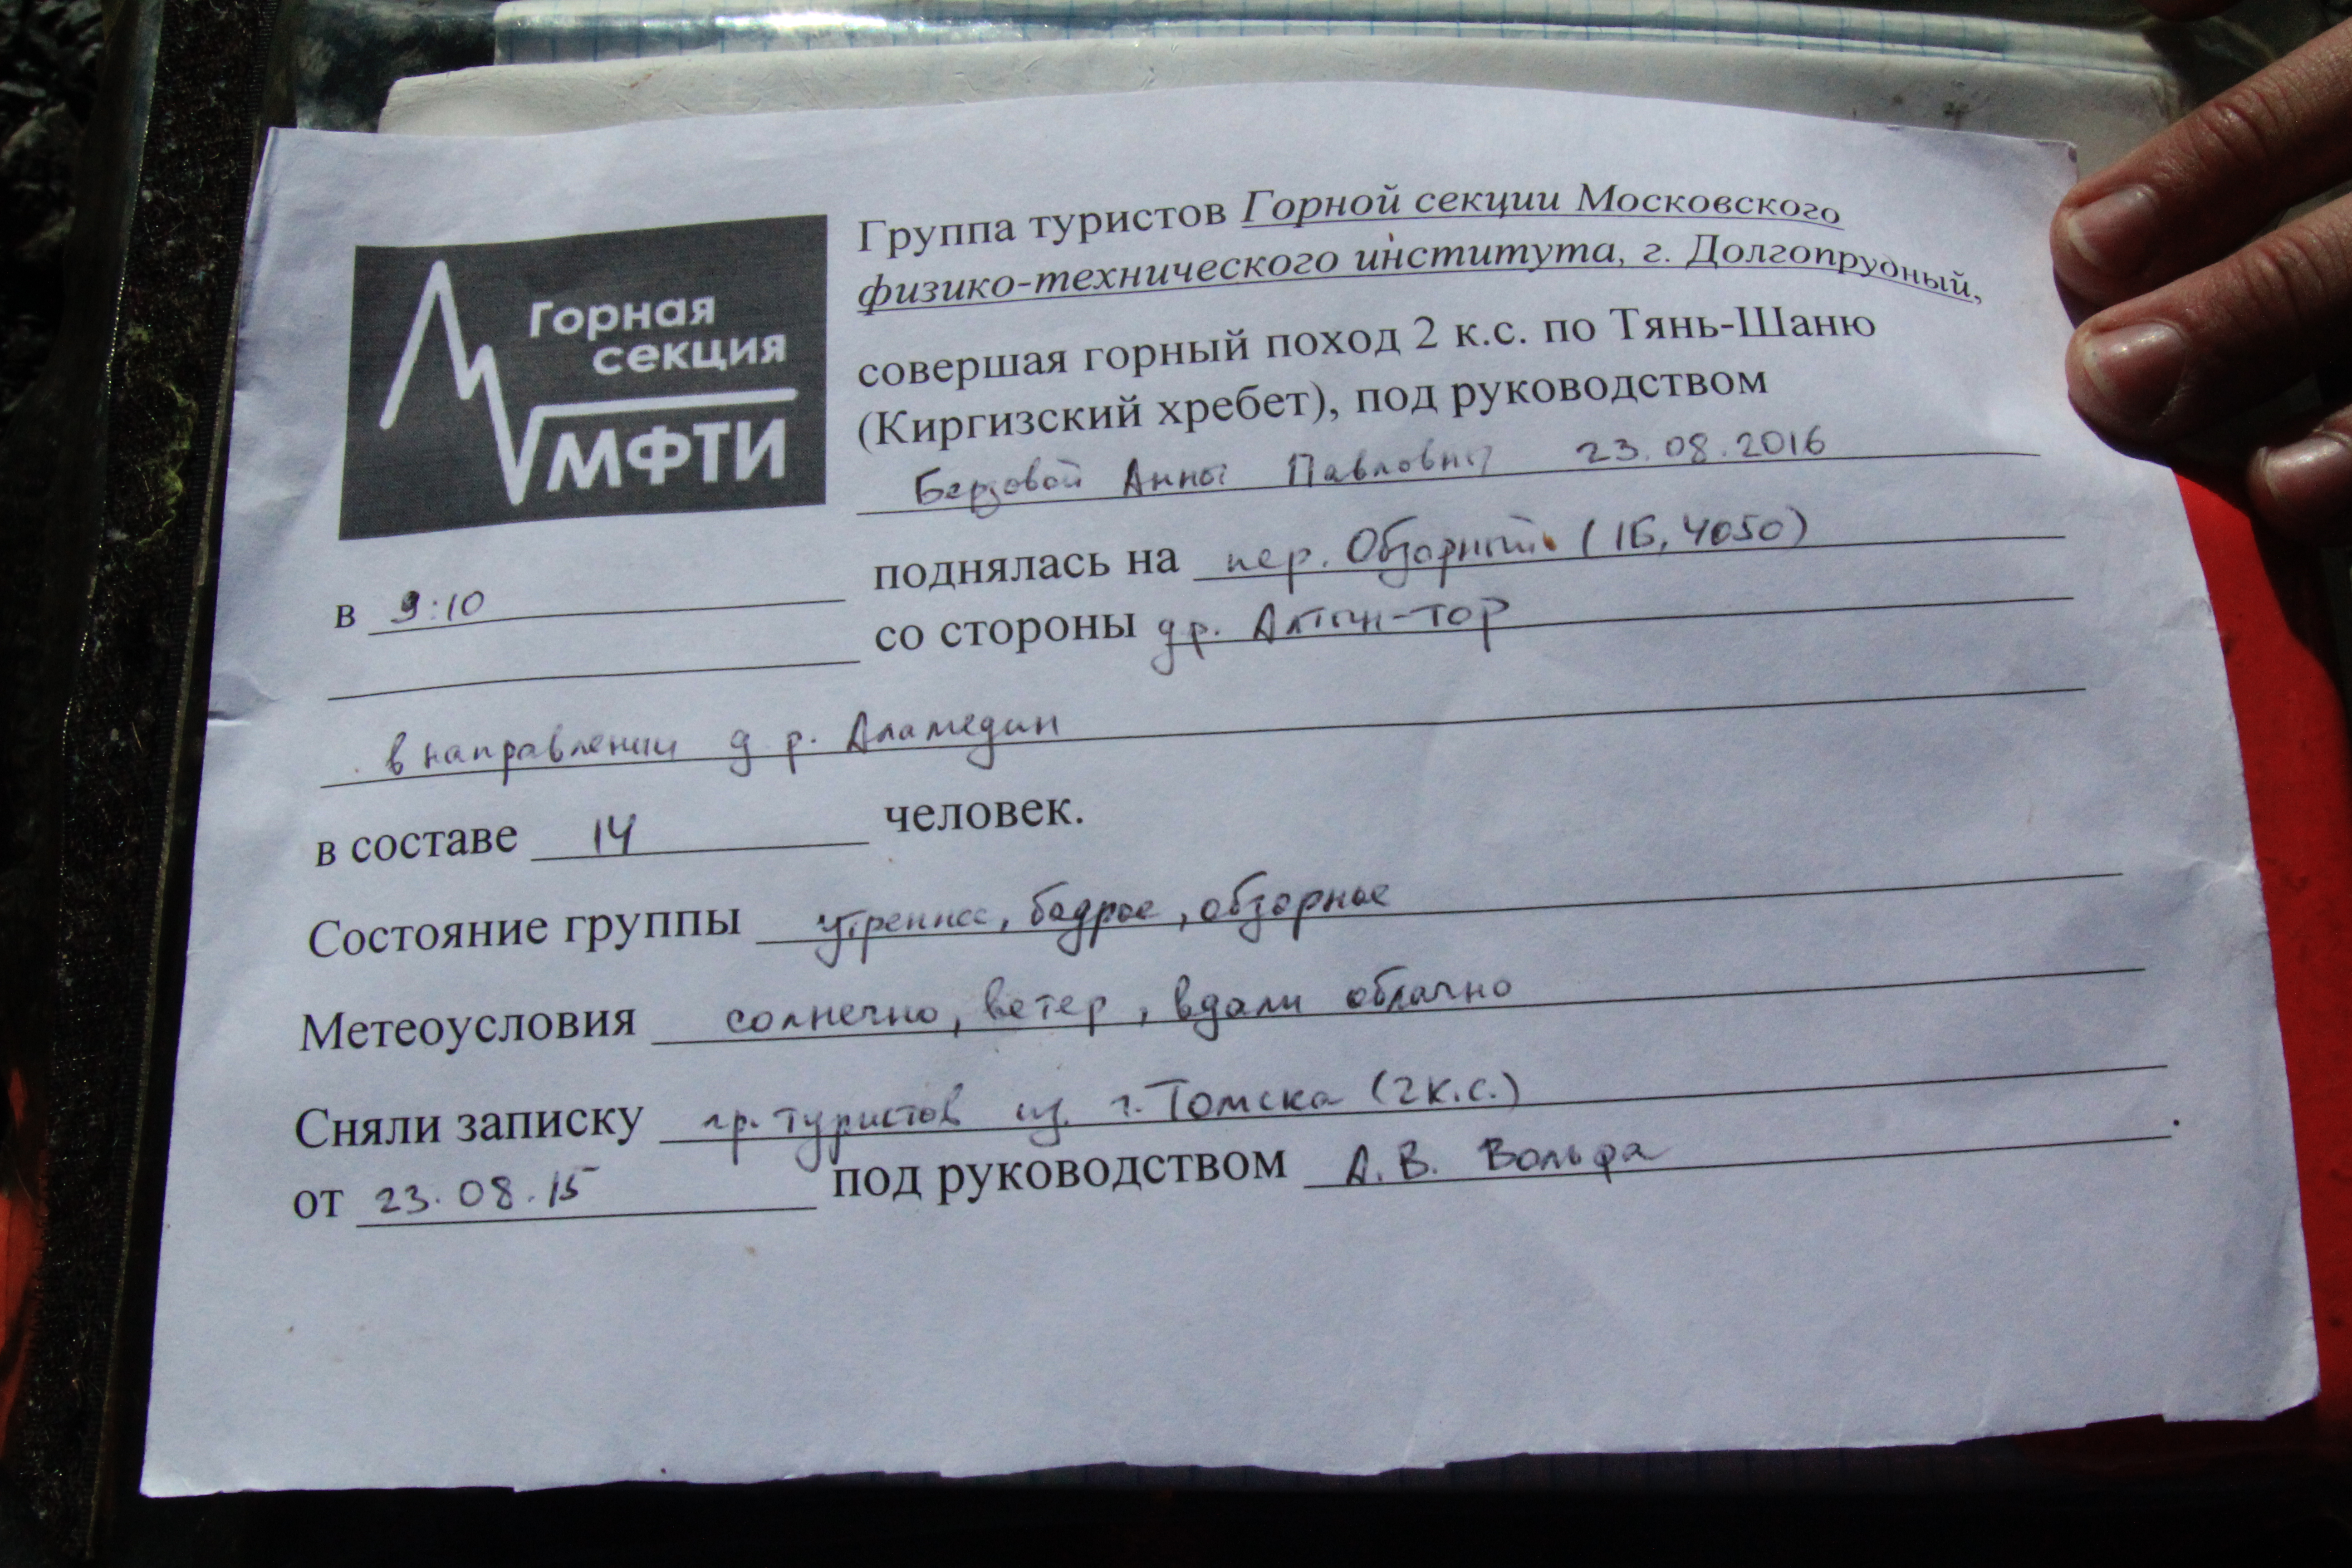 Горная
секция
МФТИ
Группа туристов Горной секции Московского
физико-технического института, г. Долгопрудный,
совершая горный поход 2 к.с. по Тянь-Шаню
(Киргизский хребет), под руководством
Берзовой Анны Павловны 23.08.2016
в 9:10 поднялась на пер. Обзорный (1Б, 4050)
со стороны др. Алтын-тор
в направлении д.р. Аламедин
в составе 14 человек.
Состояние группы утреннее, бодрое, обзорное
Метеоусловия солнечно, ветер, вдали облачно
Сняли записку гр. туристов из г. Томска (2к.с.)
от 23.08.15 под руководством А.В. Вольфа.